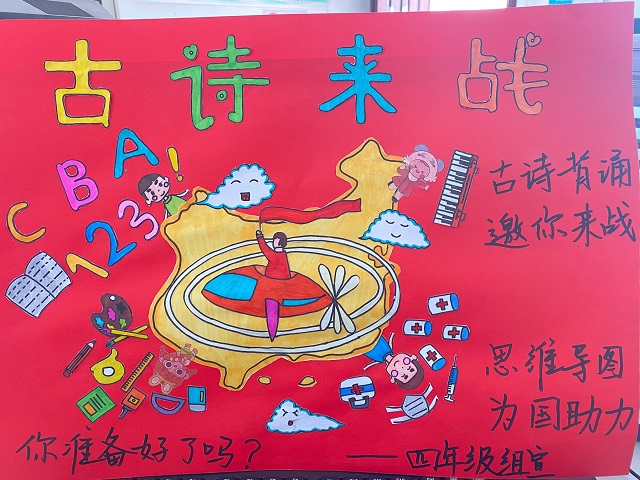 古诗来战
ABC
123!
古诗背诵
邀你来战
思维导图
为国助力
你准备好了吗?
——四年级组宣